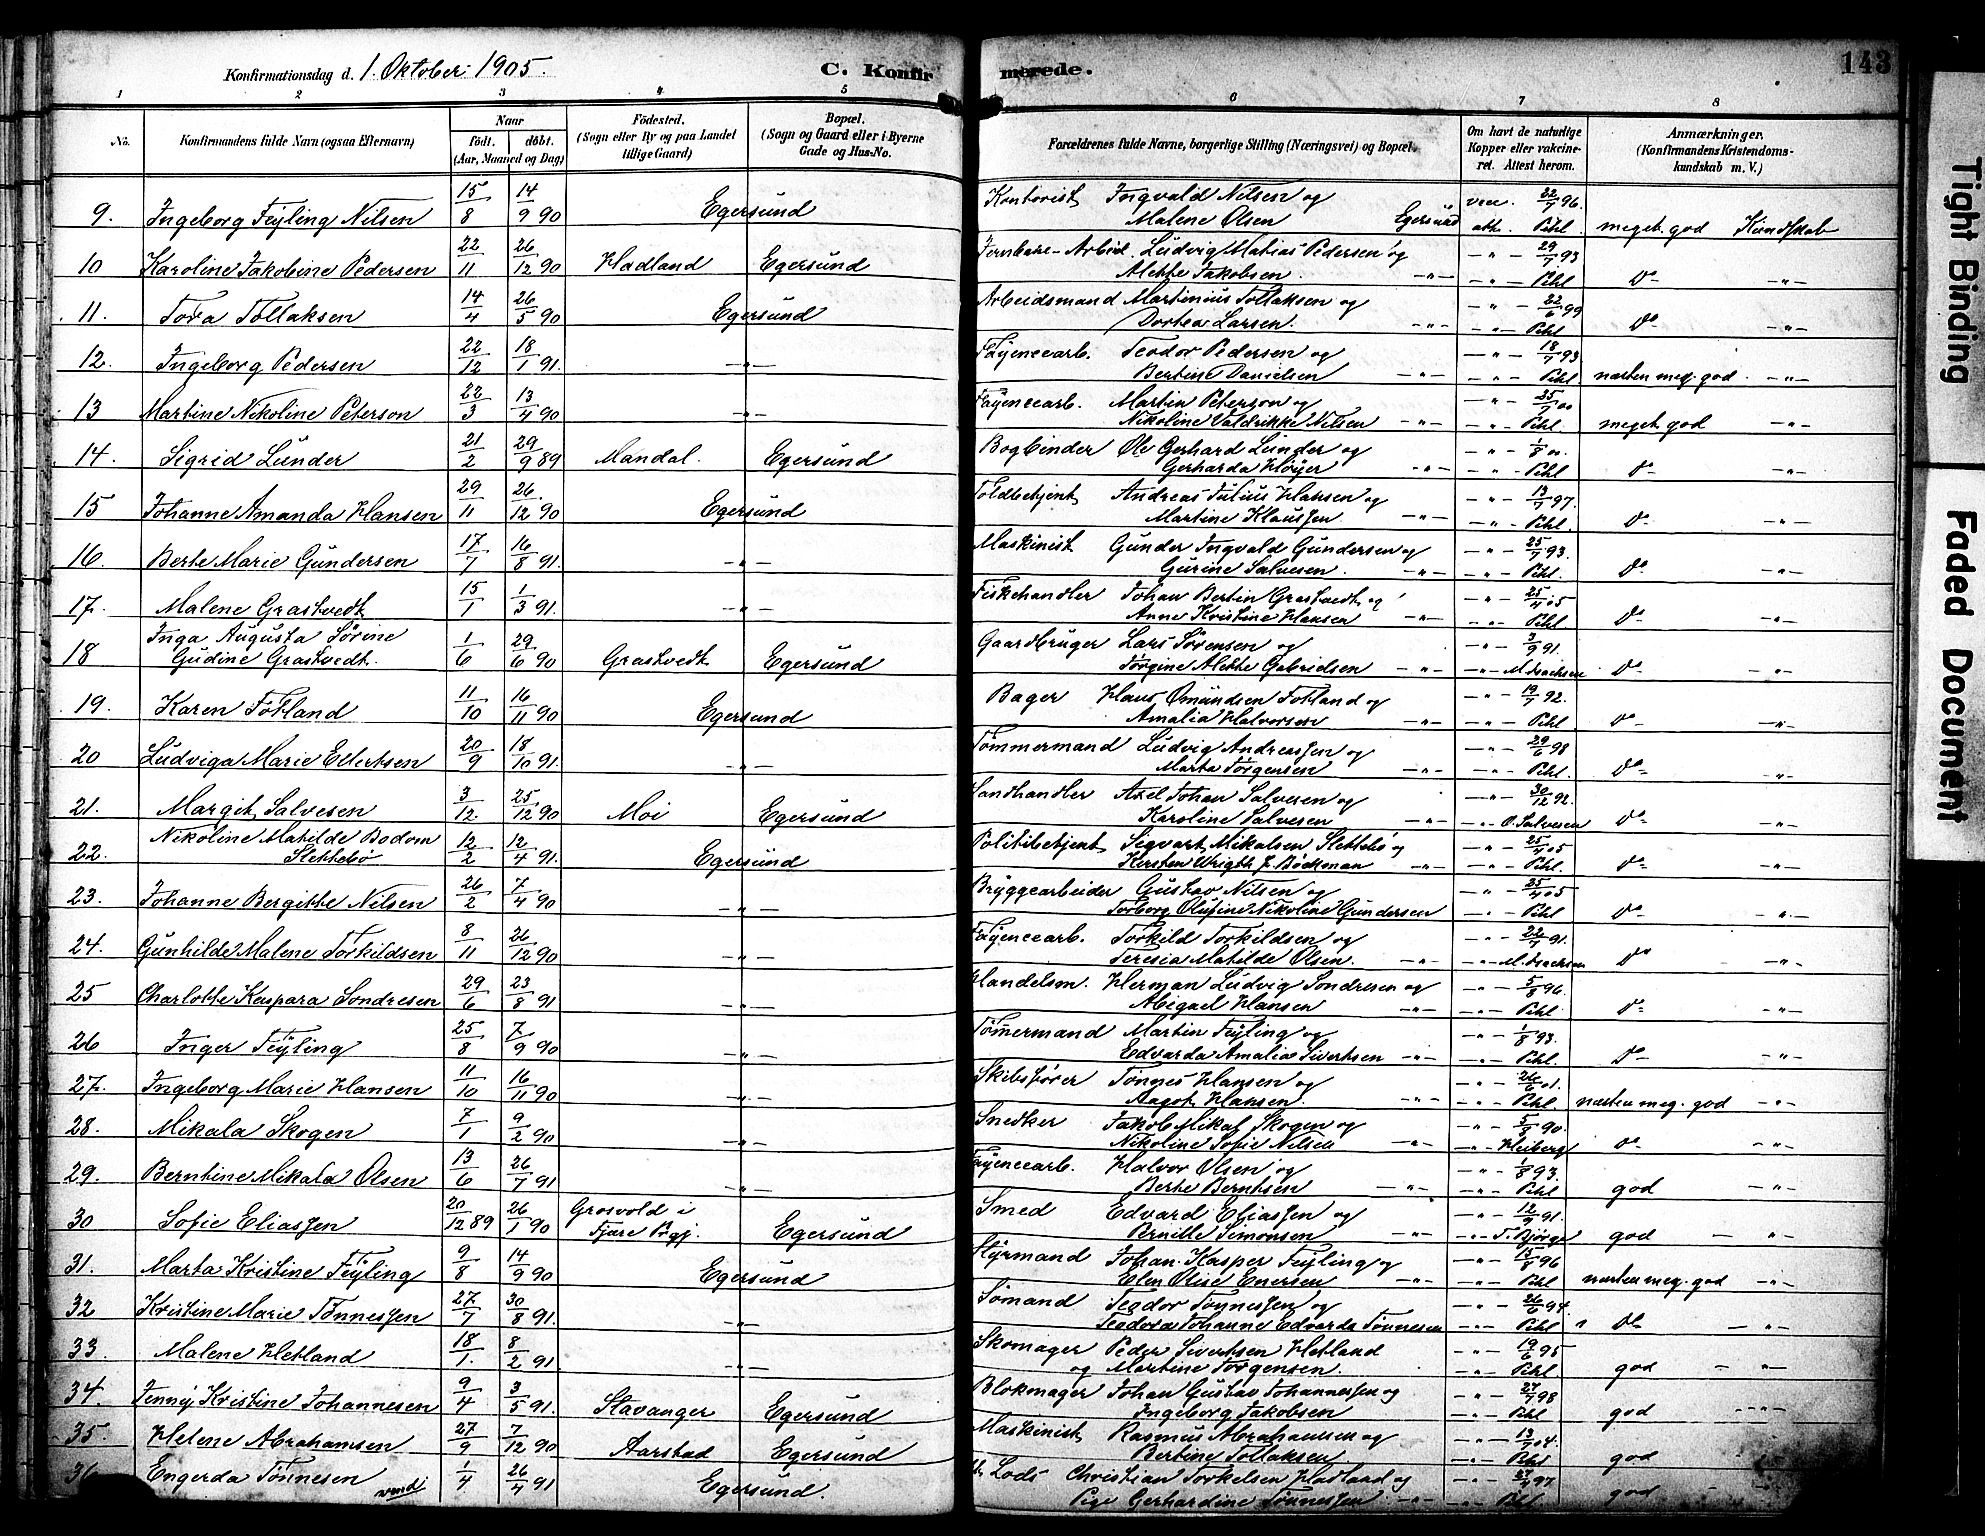 Konfirmationsdag d. 1. Oktober 1905. C. Konfir merede. 143
1 2 3 4 5 6 7 8
No. Konfirmandens fulde Navn (ogsaa Efternavn) Naar født. døbt. (Aar, Maaned og Dag) Fødested. (Sogn eller By og paa Landet tillige Gaard) Bopæl. (Sogn og Gaard eller i Byerne Gade og Hus-No. Forældrenes fulde Navne, borgerlige Stilling (Næringsvei) og Bopæl. Om havt de naturlige Kopper eller vakcineret. Attest herom. Anmærkninger. (Konfirmandens Kristendomskundskab m. V.)
9. Ingeborg Feÿling Nilsen 15/8 14/9 90 Egersund Kontorist Ingvald Nilsen og Malene Olsen Egersund vac. att. 22/7 96. Pihl meget god Kundskab
10 Karoline Jakobine Pedersen 22/11 26/12 90 Hadland Egersund Jernbane-Arbeid. Ludvig Matias Pedersen og Alette Jakobsen. -"- -"- 29/7 93 -"- Pihl Do -"-
11. Tora Tollaksen 14/4 26/5 90 Egersund Arbeidsmand Martinius Tollaksen og Dortea Larsen. -"- -"- 22/6 99 -"- Pihl Do -"-
12. Ingeborg Pedersen 22/12 18/1 91. -"- Fayencearb. Teodor Pedersen og Bertine Danielsen -"- -"- 18/7 93 -"- Pihl. næsten meg. god -"-
13 Martine Nikoline Peterson 22/3 13/4 90 -"- Fayencearb. Martin Peterson og Nikoline Valdrikke Nilsen -"- -"- 25/7 00 -"- Pihl. meget god -"-
14. Sigrid Lunder 21/2 29/9 89 Mandal. Egersund Bogbinder Ole Gerhard Lunder og Gerharda Høyer -"- -"- 1/8 00. -"- Pihl Do -"-
15 Johanne Amanda Hansen 29/11 26/12 90 Egersund Toldbetjent Andreas Julius Hansen og Martine Klaussen. -"- -"- 13/7 97. -"- Pihl Do -"-
16. Berte Marie Gundersen 17/7 16/8 91. -"- Maskinist Gunder Ingvald Gundersen og Gurine Salvesen. -"- -"- 25/7 93. -"- Pihl. Do -"-
17. Malene Grastvedt 15/1 1/3 91. -"- Fiskehandler Johan Bertin Grastvedt og Anne Kristine Hansen -"- -"- 25/4 05 -"- Pihl Do -"-
18 Inga Augusta Sørine Gudine Grastvedt. 1/6 29/6 90 Grastvedt Egersund Gaardbruger Lars Sørensen og Jørgine Alette Gabrielsen -"- -"- 3/9 91. -"- M. Isachsen Do -"-
19. Karen Fotland 11/10 16/11 90 Egersund Bager Hans Omundsen Fotland og Amalia Halvorsen -"- -"- 19/7 92. -"- Pihl Do -"-
20 Ludviga Marie Ellertsen 20/9 18/10 91. -"- Tømmermand Ludvig Andreassen og Marta Jørgensen -"- -"- 29/6 98 -"- Pihl. Do -"-
21. Margit Salvesen 3/12. 25/12 90 Moi Egersund Landhandler Axel Johan Salvesen og Karoline Salvesen -"- -"- 30/12 92. -"- O. Salvesen Do -"-
22. Nikoline Matilde Bodom Slettebø 12/2 12/4 91. Egersund Politibetjent Sigvart Mikalsen Slettebø og Kirsten Wrigth f. Bøckman -"- -"- 25/4 05 -"- Pihl. Do -"-
23. Johanne Bergitte Nilsen 26/2 7/4 90 -"- Bryggearbeider Gustav Nilsen og Torborg Olufine Nikoline Gundersen -"- 25/4 05 -"- Pihl Do -"-
24. Gunhilde Malene Torkildsen 8/11 26/12 90 -"- Fayencearb. Torkild Torkildsen og Teresia Matilde Olsen. -"- -"- 22/7 91. -"- M. Isachsen Do -"-
25 Charlotte Kaspara Sondresen 29/6 23/8 91 -"- Handelsm. Herman Ludvig Sondresen og Abigael Hansen -"- -"- 5/8 96. -"- Pihl. Do -"-
26 Inger Feÿling 25/8 7/9 90 -"- Tømmermand Martin Feÿling og Edvarda Amalia Sivertsen -"- -"- 1/8 93. -"- Pihl. Do -"-
27. Ingeborg Marie Hansen 11/10 16/11 90 -"- Skibsfører Tønnes Hansen og Aagot Hansen. -"- -"- 26/6 01. -"- Pihl. næsten meg. god -"-
28. Mikala Skogen 7/1 9/2 90 -"- Snedker Jakob Mikal Skogen og Nikoline Sofie Nilsen -"- -"- 5/8 90. -"- Heiberg Do -"-
29. Berntine Mikala Olsen 13/6 26/7 91 -"- Fayencearb. Halvor Olsen og Berte Berntsen -"- -"- 1/8 93. -"- Pihl god -"-
30 Sofie Eliassen 20/12 89 26/1 90 Grosvold i Fjære Prgj. Egersund Smed Edvard Eliassen og Pernille Simonsen -"- -"- 12/9 91. -"- T. Bjørge god -"-
31. Marta Kristine Feÿling 9/8 14/9 90 Egersund Styrmand Johan Kasper Feÿling og Elen Elise Enersen -"- -"- 15/8 96 -"- Pihl næsten meg. god -"-
32 Kristine Marie Tønnessen 27/7 30/8 91. -"- Sømand Teodor Tønnessen og Teodora Johanne Edvarda Tønnesen -"- 26/6 94. -"- Pihl Do -"-
33. Malene Hetland 18/1. 8/2 91 -"- Skomager Peder Sivertsen Hetland og Martine Jørgensen. -"- 19/6 95 -"- Pihl. god -"-
34. Jenny Kristine Johannesen 9/4 3/5 91. Stavanger Egersund Blokmager Johan Gustav Johannessen og Ingeborg Jakobsen -"- 27/7 98 -"- Pihl god -"-
35. Helene Abrahamsen 27/9 7/12 90 Aarstad Egersund Maskinist Rasmus Abrahamsen og Bertine Tollaksen -"- 13/7 04. -"- Pihl god
36. Engerda Tønnesen 1/4 26/4 91 Egersund. Lods Christian Torkelsen Hadland og Pige Gerhardine Tønnessen. -"- -"- 27/7 97 -"- Pihl. god
vend
Tight Binding
Faded Document